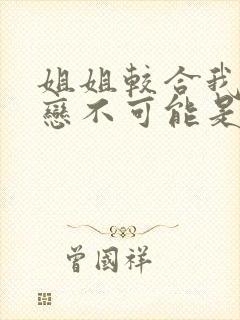 姐姐較合我
戀不可能是
曾國祥